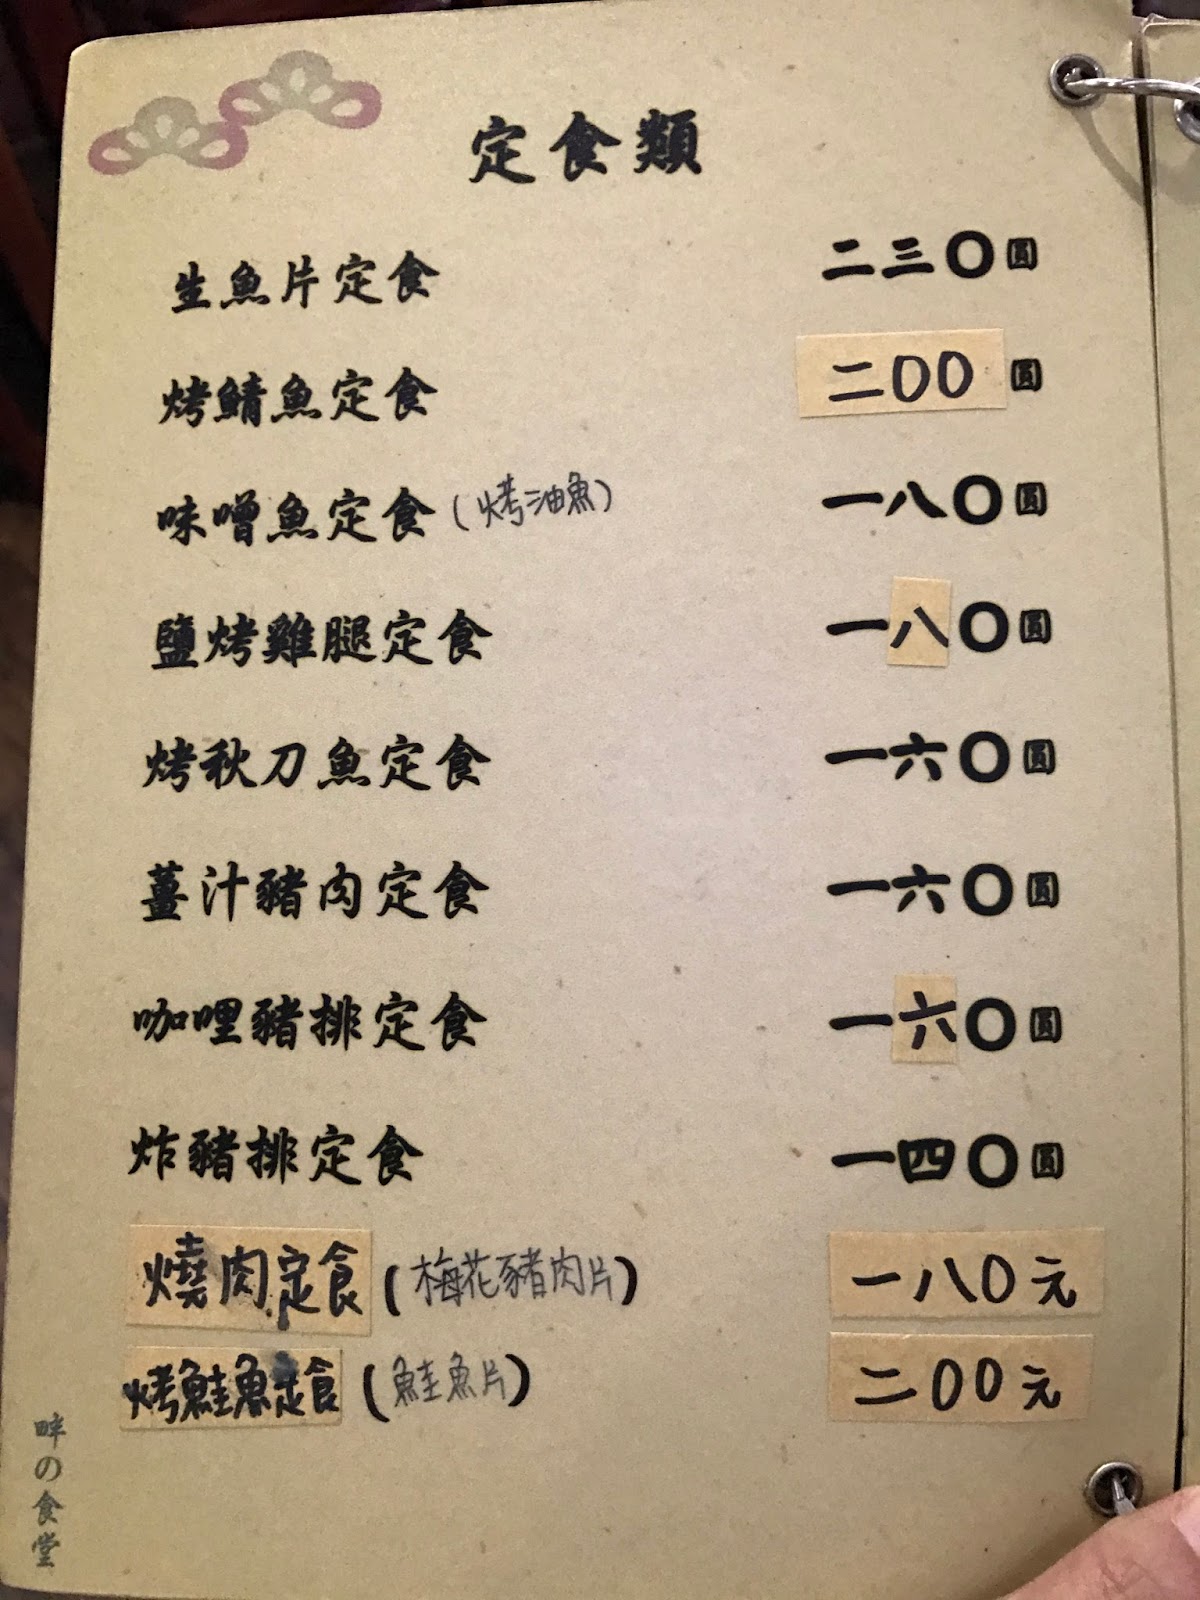 定食類
生魚片定食 二三〇圓
烤鯖魚定食 二00圓
味噌魚定食(烤油魚) 一八〇圓
鹽烤雞腿定食 一八〇圓
烤秋刀魚定食 一六〇圓
薑汁豬肉定食 一六〇圓
咖哩豬排定食 一六〇圓
炸豬排定食 一四〇圓
燒肉定食(梅花豬肉片) 一八0元
烤鮭魚定食(鮭魚片) 二00元
畔の食堂